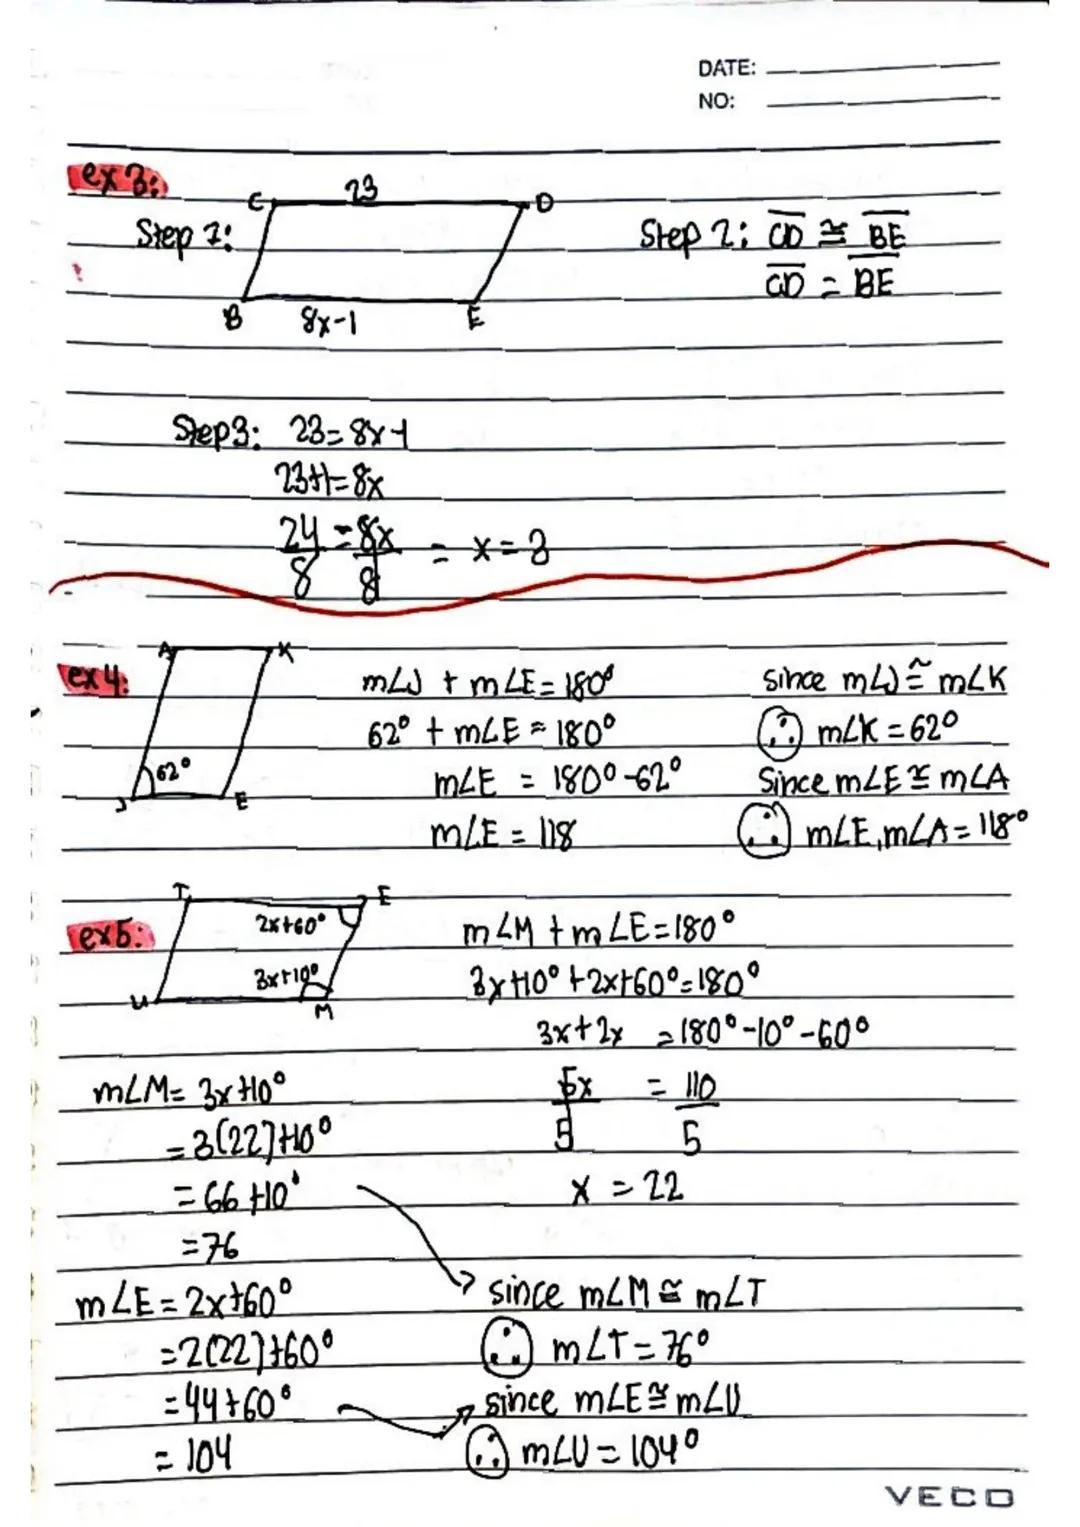 DATE:
NO:
ex 3:
C 23 D
Step 1:
B 8x-1 E
Step 2: CD ≅ BE
CD = BE
Step3: 23=8x-1
23+1=8x
24/8 = 8x/8 = x=3
ex 4:
A K
62°
J E
m∠J + m∠E=180°
62° + m∠E = 180°
m∠E = 180°-62°
m∠E = 118
since m∠J ≅ m∠K
∴ m∠K = 62°
Since m∠E ≅ m∠A
∴ m∠E, m∠A = 118°
ex5:
T E
2x+60°
3x+10°
U M
m∠M + m∠E=180°
3x+10° + 2x+60°=180°
3x+2x =180°-10°-60°
5x/5 = 110/5
x = 22
m∠M= 3x+10°
=3(22)+10°
=66+10°
=76
m∠E=2x+60°
=2(22)+60°
=44+60°
= 104
since m∠M ≅ m∠T
∴ m∠T=76°
since m∠E≅m∠U
∴ m∠U=104°
VECO